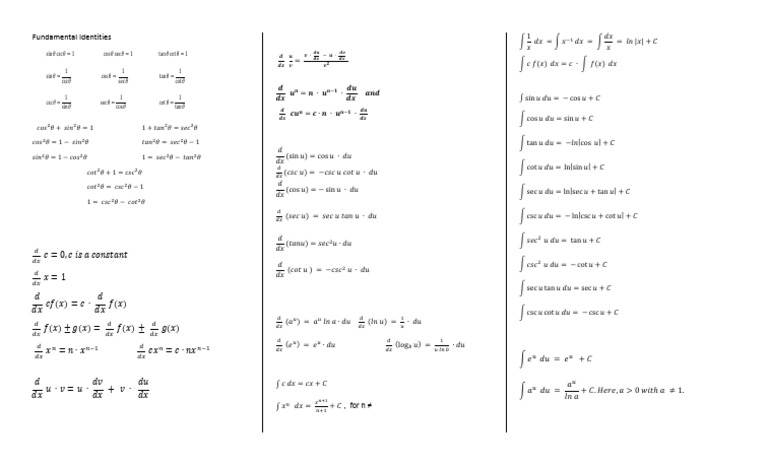 Fundamental Identities
sin θ csc θ = 1    cos θ sec θ = 1    tan θ cot θ = 1
sin θ = 1/cscθ    cos θ = 1/secθ    tan θ = 1/cotθ
csc θ = 1/sinθ    sec θ = 1/cosθ    cot θ = 1/tanθ
cos²θ + sin²θ = 1    1 + tan²θ = sec²θ
cos²θ = 1 − sin²θ    tan²θ = sec²θ − 1
sin²θ = 1 − cos²θ    1 = sec²θ − tan²θ
cot²θ + 1 = csc²θ
cot²θ = csc²θ − 1
1 = csc²θ − cot²θ
d/dx c = 0, c is a constant
d/dx x = 1
d/dx cf(x) = c · d/dx f(x)
d/dx f(x) ± g(x) = d/dx f(x) ± d/dx g(x)
d/dx xⁿ = n · xⁿ⁻¹    d/dx cxⁿ = c · nxⁿ⁻¹
d/dx u · v = u · dv/dx + v · du/dx
d/dx u/v = (v · du/dx − u · dv/dx)/v²
d/dx uⁿ = n · uⁿ⁻¹ · du/dx and
d/dx cuⁿ = c · n · uⁿ⁻¹ · du/dx
d/dx (sin u) = cos u · du
d/dx (csc u) = −csc u cot u · du
d/dx (cos u) = − sin u · du
d/dx (sec u) = sec u tan u · du
d/dx (tanu) = sec²u · du
d/dx (cot u) = −csc² u · du
d/dx (aᵘ) = aᵘ ln a · du    d/dx (ln u) = 1/u · du
d/dx (eᵘ) = eᵘ · du    d/dx (log_b u) = 1/(u ln b) · du
∫ c dx = cx + C
∫ xⁿ dx = xⁿ⁺¹/(n+1) + C , for n ≠
∫ 1/x dx = ∫ x⁻¹ dx = ∫ dx/x = ln |x| + C
∫ c f(x) dx = c · ∫ f(x) dx
∫ sin u du = − cos u + C
∫ cos u du = sin u + C
∫ tan u du = −ln|cos u| + C
∫ cot u du = ln|sin u| + C
∫ sec u du = ln|sec u + tan u| + C
∫ csc u du = − ln|csc u + cot u| + C
∫ sec² u du = tan u + C
∫ csc² u du = − cot u + C
∫ sec u tan u du = sec u + C
∫ csc u cot u du = − csc u + C
∫ eᵘ du = eᵘ + C
∫ aᵘ du = aᵘ/ln a + C. Here, a > 0 with a ≠ 1.